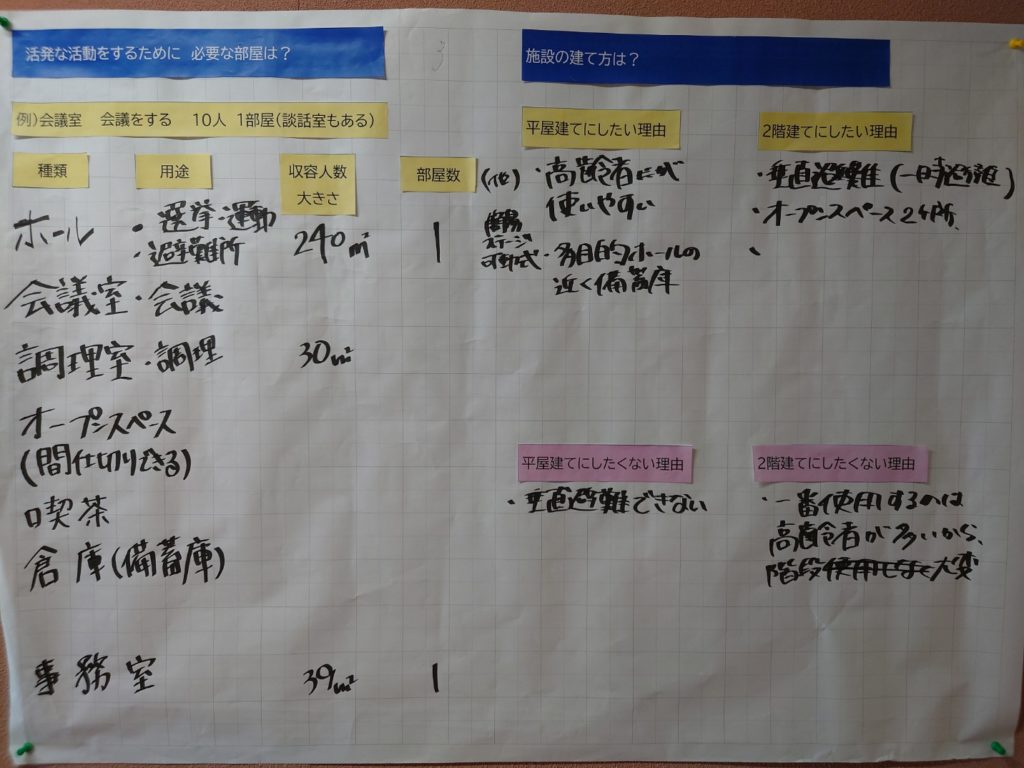 活発な活動をするために 必要な部屋は?
例)会議室 会議をする 10人 1部屋(談話室もある)
種類 用途 収容人数 大きさ 部屋数
ホール ・選挙・運動 240㎡ 1
・避難所
会議室 ・会議
調理室 ・調理 30㎡
オープンスペース
(間仕切りできる)
喫茶
倉庫(備蓄庫)
事務室 39㎡ 1
ステージ
可動式
施設の建て方は?
平屋建てにしたい理由
・高齢者にが
使いやすい
・多目的ホールの
近く備蓄庫
2階建てにしたい理由
・垂直避難(一時避難)
・オープンスペース2ヶ所、
平屋建てにしたくない理由
・垂直避難できない
2階建てにしたくない理由
・一番使用するのは
高齢者が多いから、
階段
大変